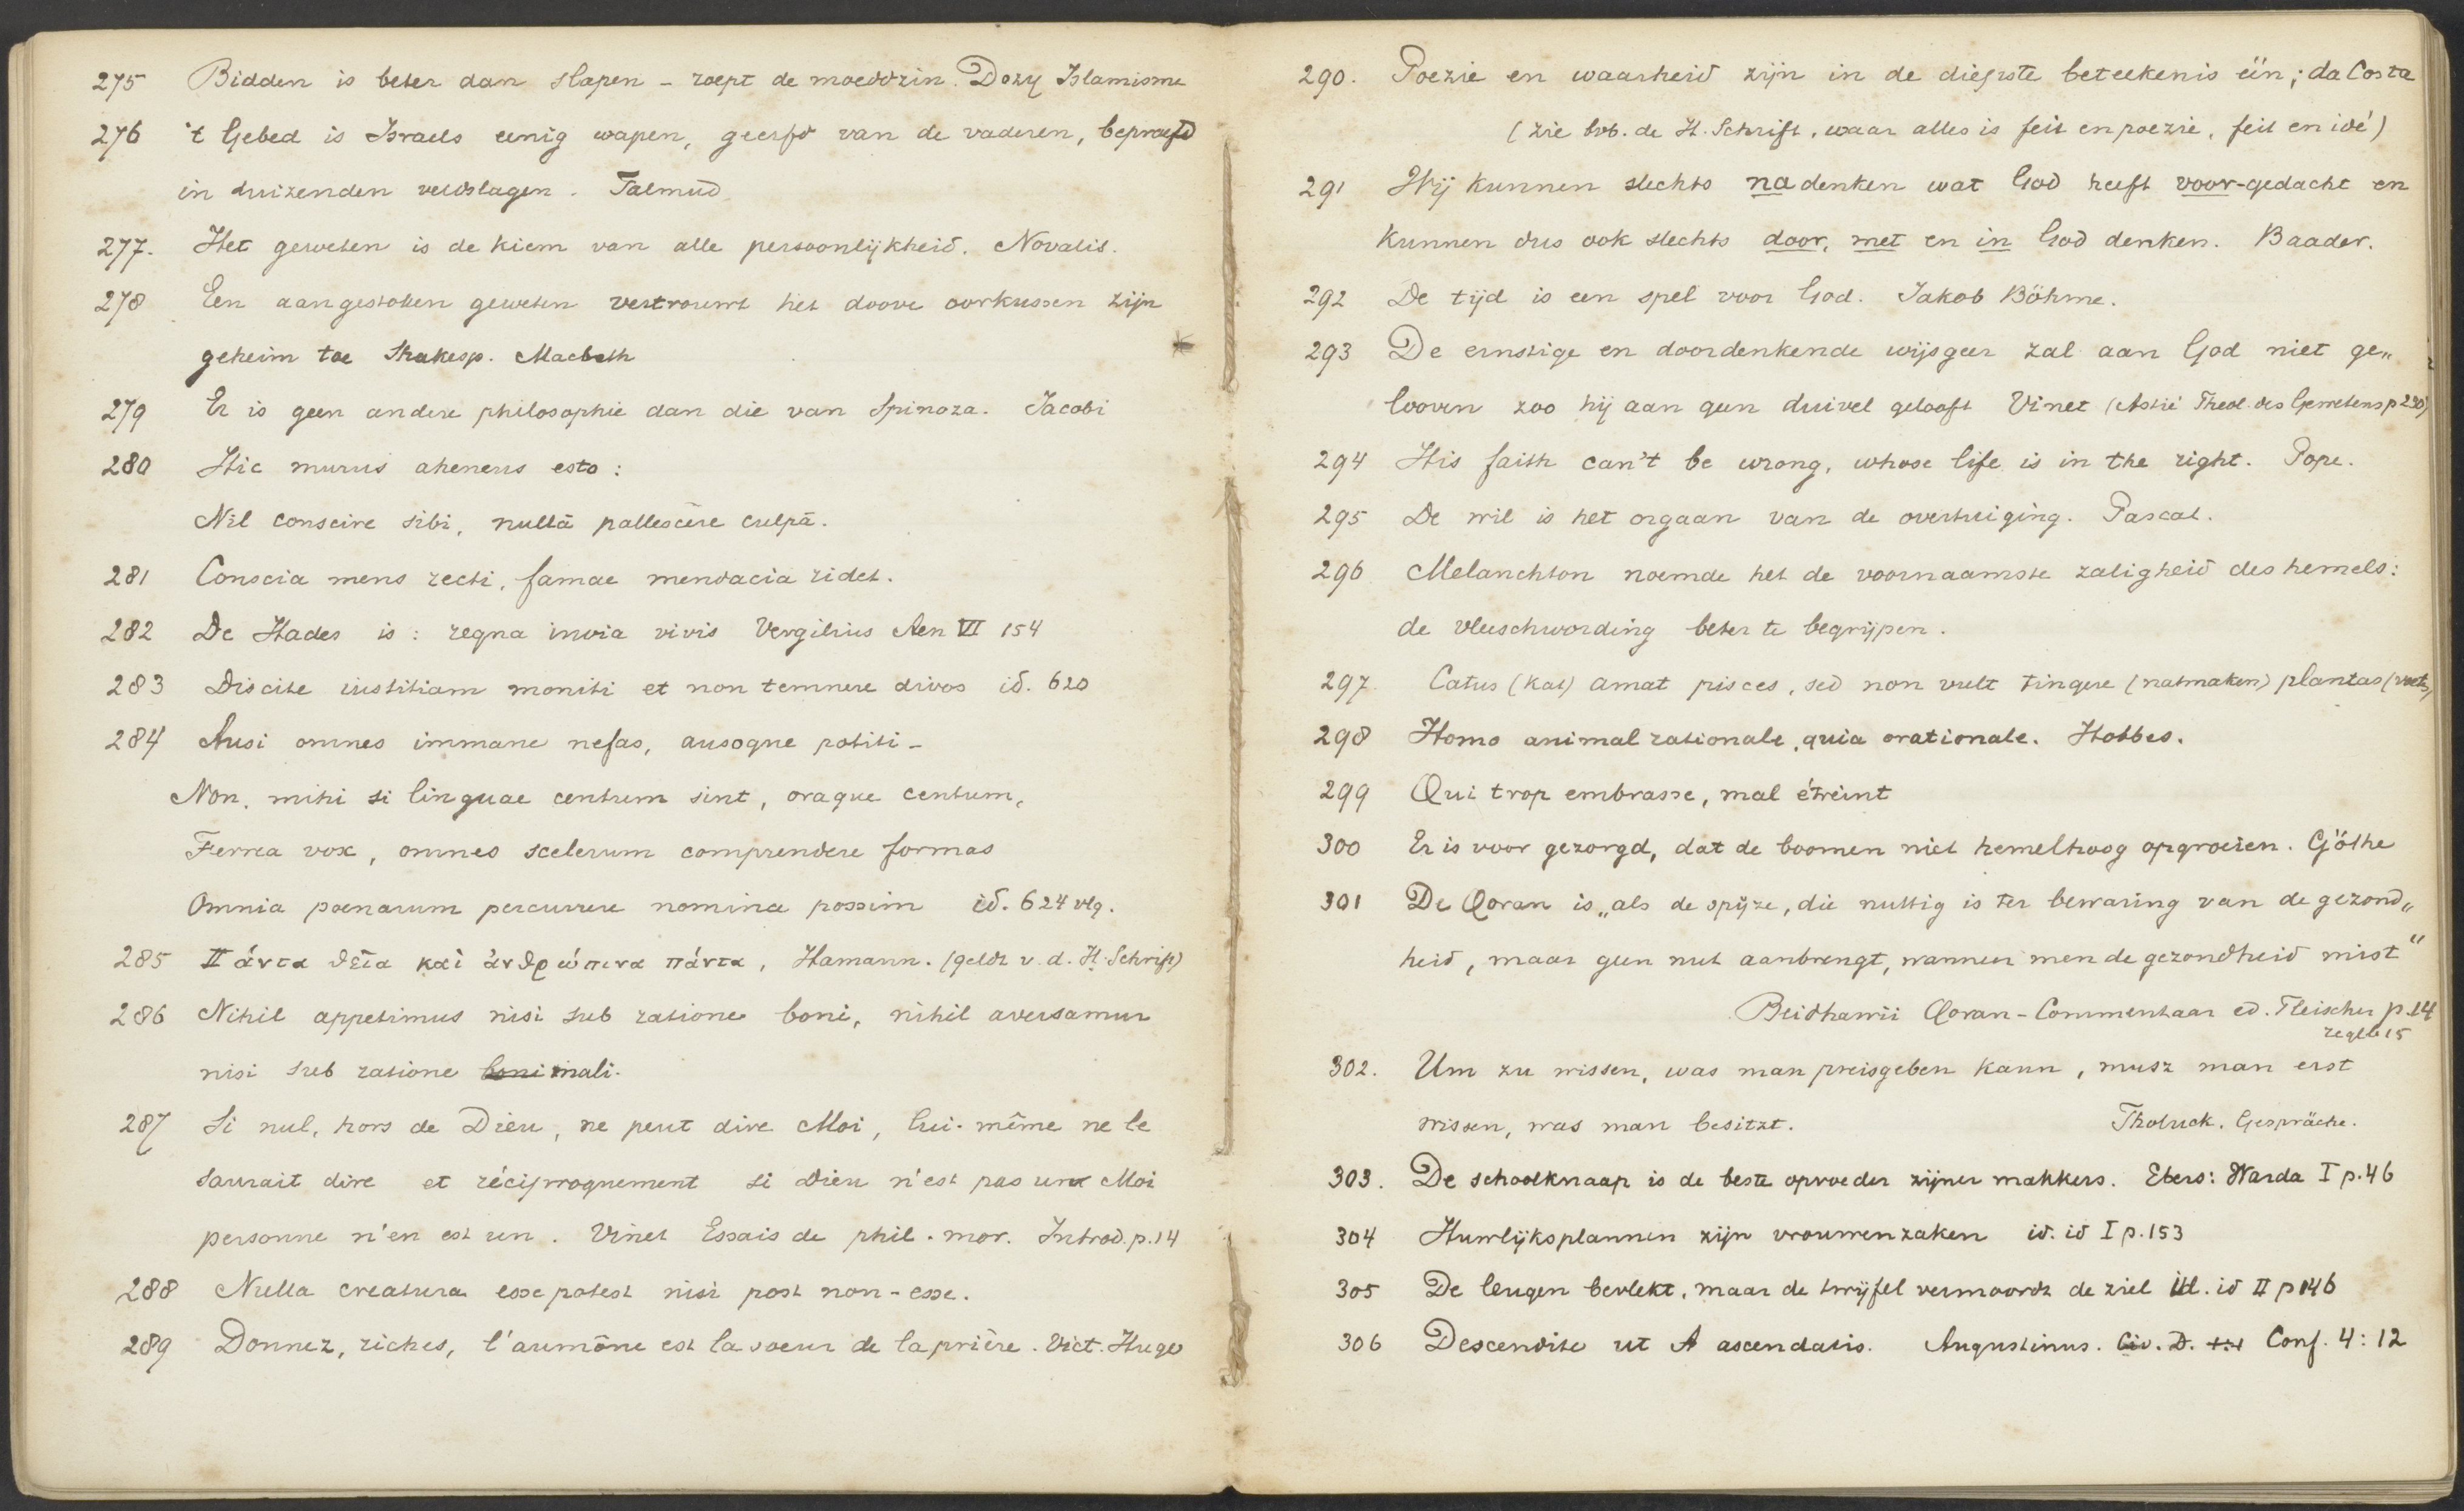 275 Bidden is beter dan slapen - roept de moeddzin. Dozy Islamisme
276 't Gebed is Israels eenig wapen, geerfd van de vaderen, beproefd
in duizenden veldslagen. Talmud
277. Het geweten is de kiem van alle persoonlijkheid. Novalis.
278 Een aangestoken geweten vertrouwt het doove oorkussen zijn
geheim toe Shakesp. Macbeth
279 Er is geen andere philosophie dan die van Spinoza. Jacobi
280 Hic murus aheneus esto:
Nil conscire sibi, nullā pallescĕre culpā.
281 Conscia mens recti, famae mendacia ridet.
282 De Hades is: regna invia vivis Vergilius Aen VI 154
283 Discite iustitiam moniti et non temnere divos id. 620
284 Ausi omnes immane nefas, ausoque potiti -
Non, mihi si linguae centum sint, oraque centum,
Ferrea vox, omnes scelerum comprendere formas
Omnia poenarum percurrere nomina possim id. 624 vlg.
285 Πάντα θεῖα καὶ ἀνθρώπινα πάντα, Hamann. (geldt v. d. H. Schrift)
286 Nihil appetimus nisi sub ratione boni, nihil aversamur
nisi sub ratione boni mali.
287 Si nul, hors de Dieu, ne peut dire Moi, lui-même ne le
saurait dire et réciproquement si Dieu n'est pas un Moi
personne n'en est un. Vinet Essais de phil. mor. Introd. p. 14
288 Nulla creatura esse potest nisi post non-esse.
289 Donnez, riches, l'aumône est la soeur de la prière. Vict. Hugo
290. Poezie en waarheid zijn in de diepste beteekenis één; da Costa
(zie bvb. de H. Schrift, waar alles is feit en poezie, feit en idé)
291 Wij kunnen slechts nadenken wat God heeft voor-gedacht en
kunnen dus ook slechts door, met en in God denken. Baader.
292 De tijd is een spel voor God. Jakob Böhme.
293 De ernstige en doordenkende wijsgeer zal aan God niet ge„
looven zoo hij aan geen duivel gelooft Vinet (Astié Theol. des Gewetens p 230)
294 His faith can't be wrong, whose life is in the right. Pope.
295 De wil is het orgaan van de overtuiging. Pascal.
296 Melanchton noemde het de voornaamste zaligheid des hemels:
de vleeschwording beter te begrijpen.
297 Catus (kat) amat pisces, sed non vult tingere (natmaken) plantas (voeten)
298 Homo animal rationale, quia orationale. Hobbes.
299 Qui trop embrasse, mal étreint
300 Er is voor gezorgd, dat de boomen niet hemelhoog opgroeien. Göthe
301 De Qoran is „als de spijze, die nuttig is ter bewaring van de gezond„
heid, maar geen nut aanbrengt, wanneer men de gezondheid mist"
Beidhawii Qoran-Commentaar ed. Fleischer p. 14
regel 15
302. Um zu wissen, was man preisgeben kann, musz man erst
wissen, was man besitzt. Tholuck. Gespräche.
303. De schoolknaap is de beste opvoeder zijner makkers. Ebers: Warda I p. 46
304 Huwlijksplannen zijn vrouwenzaken id. id I p. 153
305 De leugen bevlekt, maar de twijfel vermoordt de ziel id. id II p 146
306 Descendite ut A ascendatis. Augustinus. Civ. D. Conf. 4:12